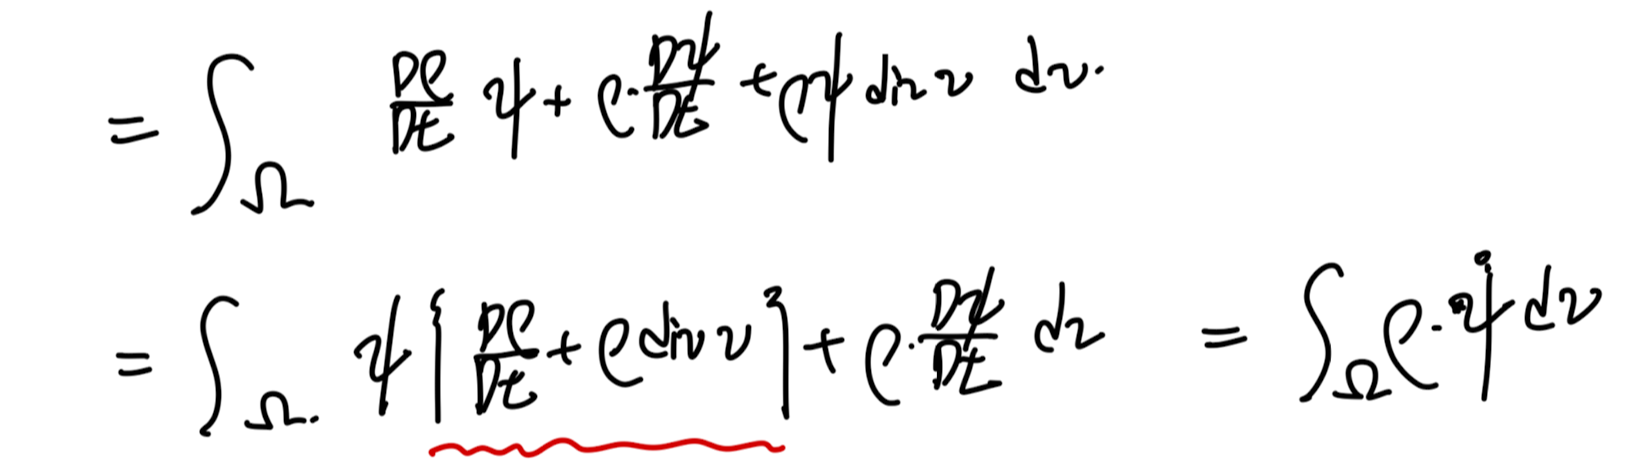 = ∫_Ω Dρ/Dt ψ + ρ · Dψ/Dt + ρψ div v dv.
= ∫_Ω. ψ { Dρ/Dt + ρ div v } + ρ · Dψ/Dt dv = ∫_Ω ρ · ψ̇ dv